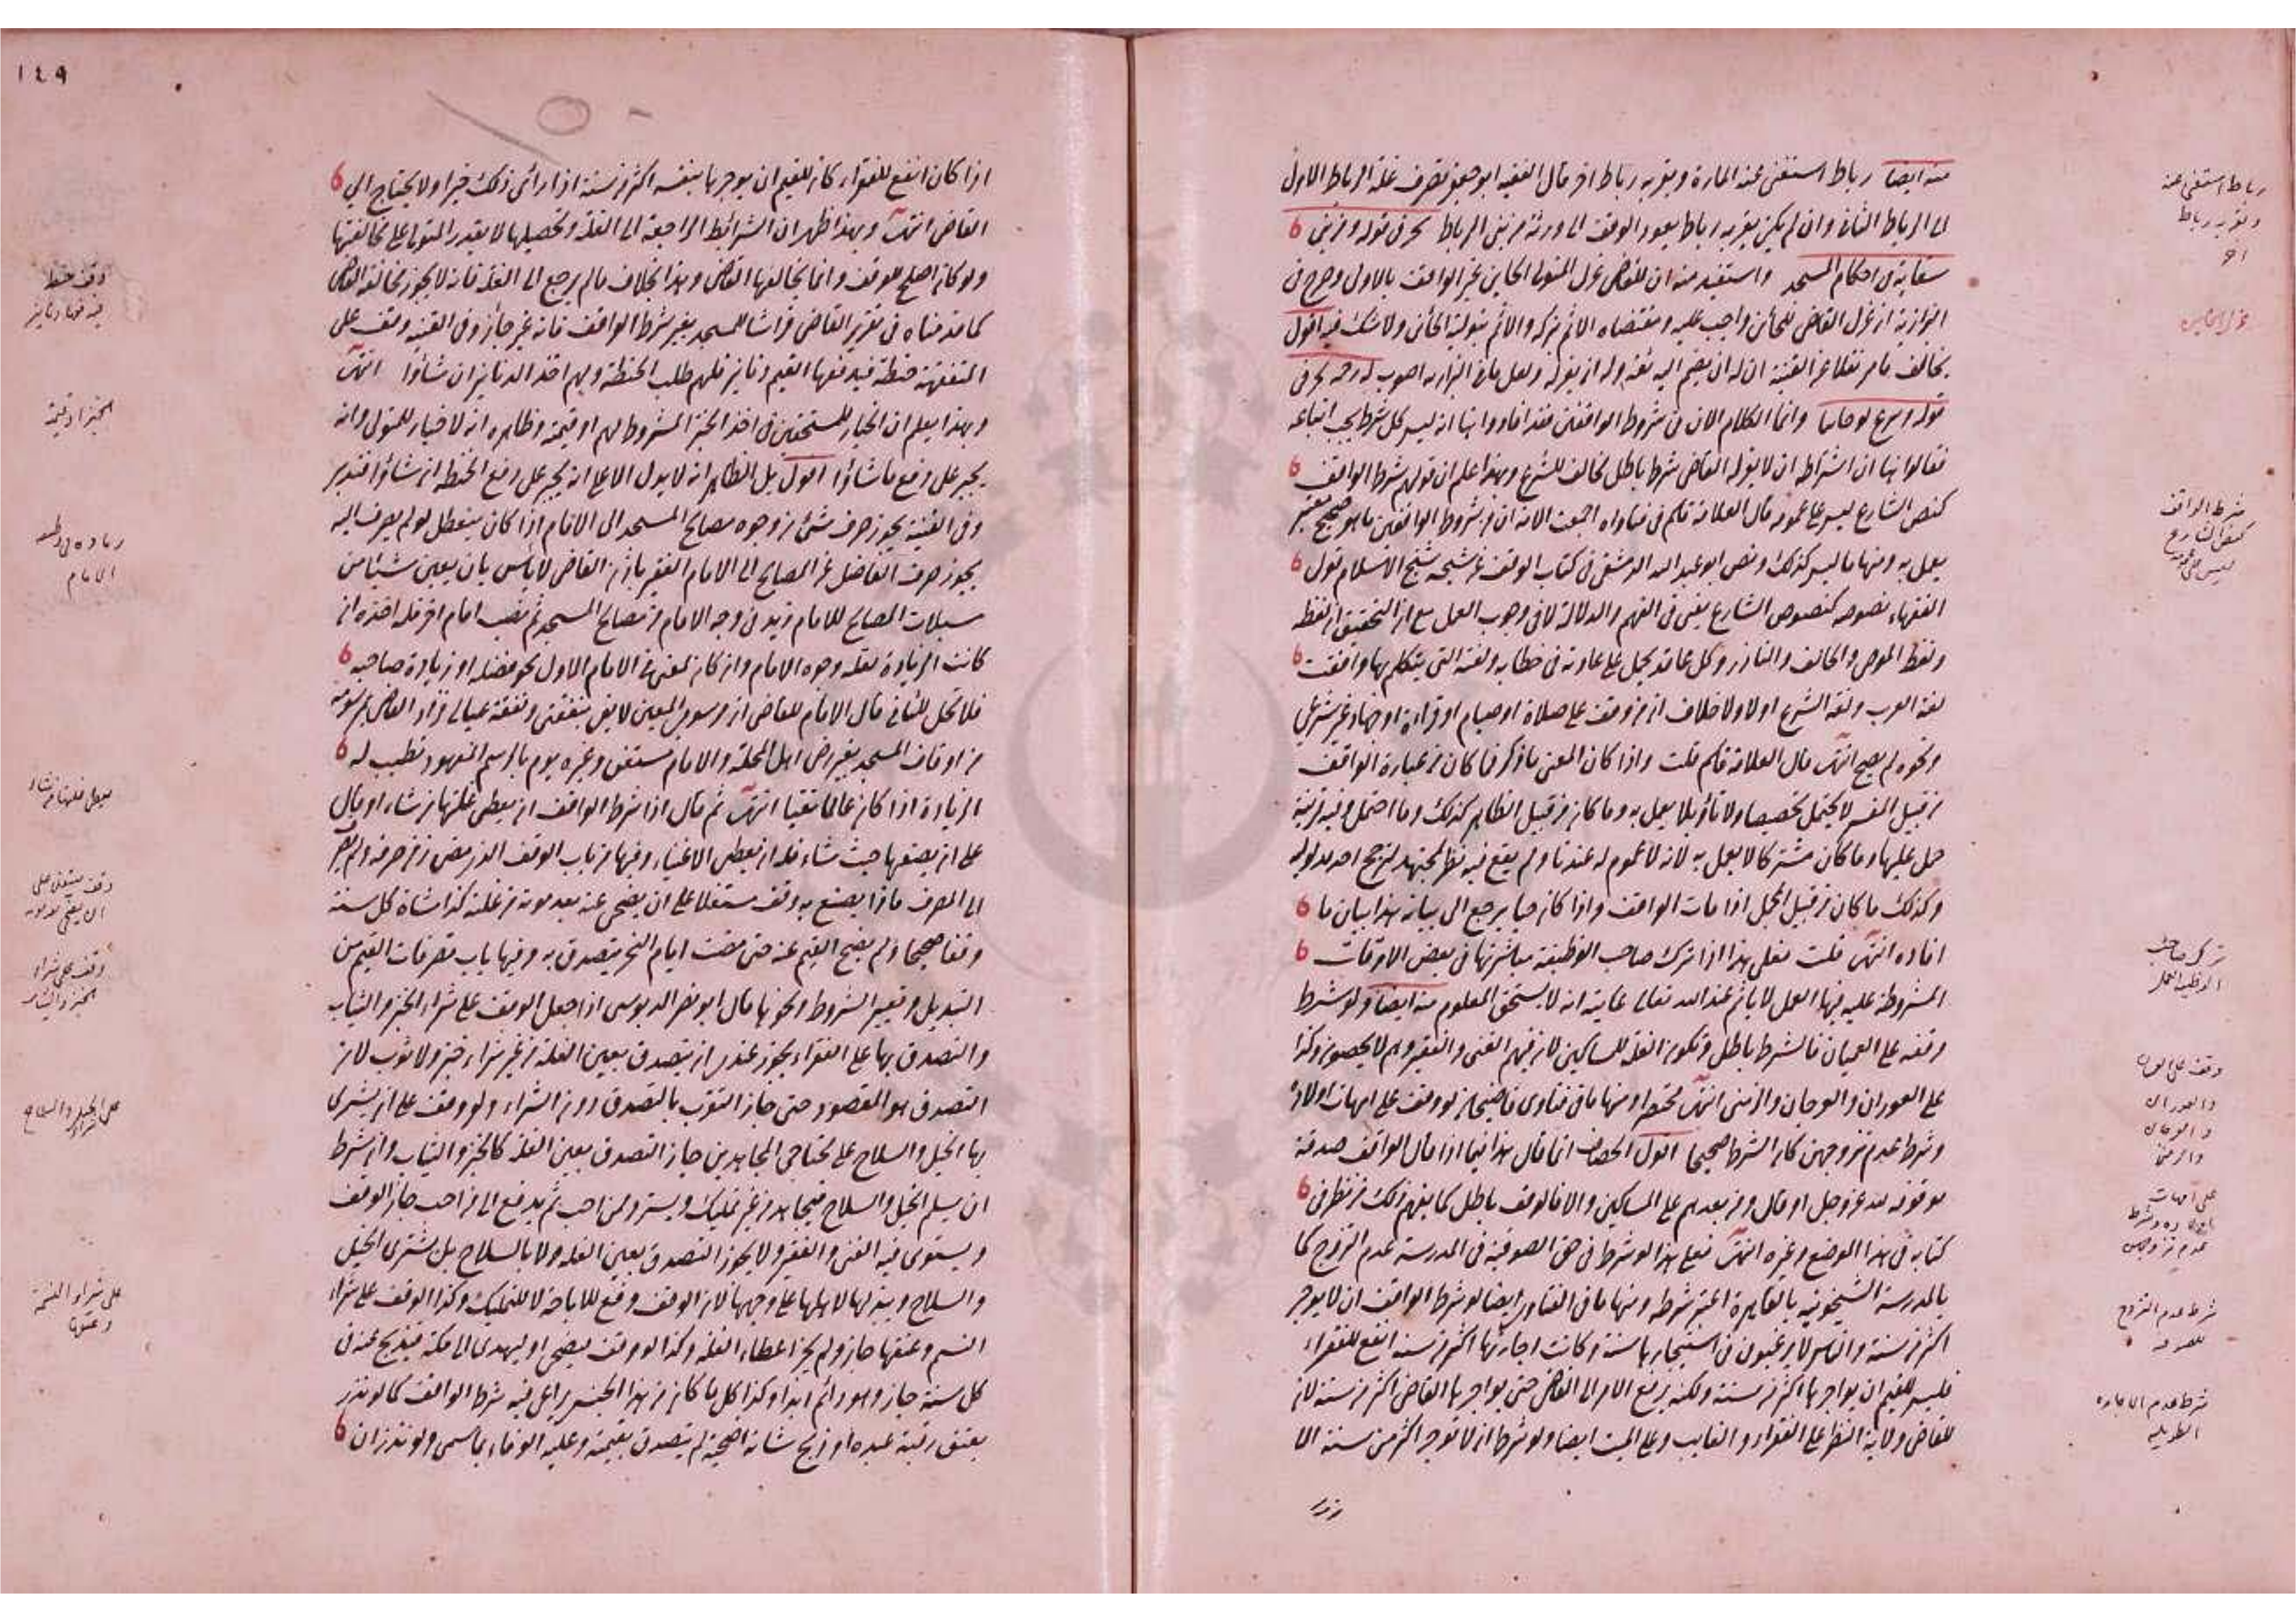 منه ايضا رباط استغنى عنه المارة وبقربه رباط اخر قال الفقيه ابو جعفر تصرف غلة الرباط الاول
الى الرباط الثاني وان لم يكن بقربه رباط يعود الوقف الى ورثة من بنى الرباط بحر في قوله ومن بنى
سقاية في احكام المسجد واستفيد منه ان للقاضي عزل المتولي الخاين غير الواقف بالاولى وصرح في
البزازية ان عزل القاضي للخائن واجب عليه ومقتضاه الاثم بتركه والاثم بتولية الخائن ولا شك فيه اقول
يخالف ما مر نقلا عن القنية ان له ان يضم اليه ثقة وله ان يعزله ولعل ما في البزازية اصوب له رحمه بحر في
قوله وينزع لو خاينا وانما الكلام الان في شروط الواقفين فقد افادوا هنا انه ليس كل شرط يجب اتباعه
فقالوا هنا ان اشتراط ان لا يعزله القاضي شرط باطل مخالف للشرع وبهذا علم ان قولهم شرط الواقف
كنص الشارع ليس على عمومه قال العلامة قاسم في فتاواه اجمعت الامة ان من شروط الواقفين ما هو صحيح معتبر
يعمل به ومنها ما ليس كذلك ونص ابو عبد الله الدمشقي في كتاب الوقف عن شيخه شيخ الاسلام قول
الفقهاء نصوصه كنصوص الشارع يعني في الفهم والدلالة لا في وجوب العمل مع ان التحقيق ان لفظه
ولفظ الموصي والحالف والناذر وكل عاقد يحمل على عادته في خطابه ولغته التي يتكلم بها وافقت
لغة العرب ولغة الشرع او لا ولا خلاف ان من وقف على صلاة او صيام او قراءة او جهاد غير شرعي
ونحوه لم يصح انتهى قال العلامة قاسم قلت واذا كان المعنى ما ذكر فما كان من عبارة الواقف
من قبيل المفسر لا يحتمل تخصيصا ولا تأويلا يعمل به وما كان من قبيل الظاهر كذلك وما احتمل وفيه قرينة
حمل عليها وما كان مشتركا لا يعمل به لانه لا عموم له عندنا ولم يقع فيه نظر المجتهد لترجح احد مدلوليه
وكذلك ما كان من قبيل المجمل اذا مات الواقف واذا كان حيا يرجع الى بيانه هذا بيان ما
افاده انتهى قلت فعلى هذا اذا ترك صاحب الوظيفة مباشرتها في بعض الاوقات
المشروطة عليه فيها العمل لا ياثم عند الله تعالى غايته انه لا يستحق المعلوم منه ايضا ولو شرط
وقفه على العميان فالشرط باطل وتكون الغلة للمساكين لان فيهم الغني والفقير وهم لا يحصون وكذا
على العوران والعرجان والزمنى انتهى مختصرا ومنها ما في فتاوى قاضيخان لو وقف على امهات اولاده
وشرط عدم تزوجهن كان الشرط صحيحا اقول الخصاف انما قال هذا فيما اذا قال الواقف صدقة
موقوفه لله عز وجل او قال ومن بعدهم على المساكين والا فالوقف باطل كما يفهم ذلك من نظر في
كتابه في هذا الموضع وغيره انتهى فعلى هذا لو شرط في حق الصوفية في المدرسة عدم التزوج كما
بالمدرسة الشيخونية بالقاهرة اعتبر شرطه ومنها ما في الفتاوى ايضا لو شرط الواقف ان لا يوجر
اكثر من سنة والناس لا يرغبون في استيجارها سنة وكانت اجارتها اكثر من سنة انفع للفقراء
فليس للقيم ان يواجرها اكثر من سنة ولكنه يرفع الامر الى القاضي حتى يواجرها القاضي اكثر من سنة لان
للقاضي ولاية النظر على الفقراء والغايب وعلى الميت ايضا ولو شرط ان لا توجر اكثر من سنة الا
رباط استغنى عنه
وبقربه رباط
اخر
عزل الخاين
شرط الواقف
كنص الشارع
ليس على عمومه
ترك صاحب
الوظيفة العمل
وقف على العميان
والعوران
والعرجان
والزمنى
على امهات
اولاده وشرط
عدم تزوجهن
شرط عدم التزوج
للصوفية
شرط عدم الاجارة
الطويله
١٤٩
اذا كان انفع للفقراء كان للقيم ان يوجرها بنفسه اكثر من سنة اذا رأى ذلك خيرا ولا يحتاج الى
القاضي انتهى وبهذا ظهر ان الشرائط الراجعة الى الغلة وتحصيلها لا يقدر المتولي على مخالفتها
ولو كان اصلح للوقف وانما يخالفها القاضي وهذا بخلاف ما لم يرجع الى الغلة فانه لا يجوز مخالفة القاضي
كما قدمناه في تقرير القاضي فراشا للمسجد بغير شرط الواقف فانه غير جائز وفي القنية وقف على
المتفقهة حنطة فيدفعها القيم دنانير فلهم طلب الحنطة ولهم اخذ الدنانير ان شاؤا انتهى
وبهذا يعلم ان الخيار للمستحقين في اخذ الخبز المشروط لهم او قيمته وظاهره انه لا خيار للمتولي وانه
يجبر على دفع ما شاؤا اقول بل الظاهر انه لا يدل الا على انه يجبر على دفع الحنطة ان شاؤا فتدبر
وفي القنية يجوز صرف شئ من وجوه مصالح المسجد الى الامام اذا كان يتعطل لو لم يصرف اليه
يجوز صرف الفاضل عن المصالح الى الامام الفقير باذن القاضي لا بأس بان يعين شيئا من
مسبلات المصالح للامام زيد في وجه الامام من مصالح المسجد ثم نصب امام اخر فله اخذه ان
كانت الزيادة لقلة وجوه الامام وان كان لمعنى في الامام الاول نحو فضله او زيادة صاحبه
فلا تحل للثاني قال الامام للقاضي ان مرسومي المعين لا يفي بنفقتي ونفقة عيالي فزاد القاضي في مرسومه
من اوقاف المسجد بغير رضى اهل المحلة والامام مستغن وغيره يوم بالرسم المعهود تطيب له
الزيادة اذا كان عالما تقيا انتهى ثم قال اذا شرط الواقف ان يعطي غلتها من شاء او قال
على ان يضعها حيث شاء فله ان يعطي الاغنياء وفيها من باب الوقف الذي مضى زمن صرفه ولم يصرف
الى المصرف ماذا يصنع به وقف مستغلا على ان يضحي عنه بعد موته من غلته كذا شاة كل سنة
وقفا صحيحا ولم يضح القيم عنه حتى مضت ايام النحر يتصدق به وفيها باب تصرفات القيم من
التبديل وتغيير الشروط ونحوها قال ابو نصر الدبوسي اذا جعل الوقف على شراء الخبز والثياب
والتصدق بها على الفقراء يجوز عندي ان يتصدق بعين الغلة من غير شراء خبز ولا ثوب لان
التصدق هو المقصود حتى جاز التقرب بالتصدق دون الشراء ولو وقف على ان يشتري
بها الخيل والسلاح على محتاجي المجاهدين جاز التصدق بعين الغلة كالخبز والثياب وان شرط
ان يسلم الخيل والسلاح فيجاهد من غير تمليك ويسترد ممن احب ثم يدفع الى من احب جاز الوقف
ويستوي فيه الغني والفقير ولا يجوز التصدق بعين الغلة ولا بالسلاح بل يشتري الخيل
والسلاح ويبذلها لاهلها على وجهها لان الوقف وقع للاباحة لا للتمليك وكذا الوقف على شراء
النسم وعتقها جاز ولم يجز اعطاء الغلة وكذا لو وقف ليضحي او ليهدي الى مكة فيذبح عنه في
كل سنة جاز وهو دائم ابدا وكذا كل ما كان من هذا الجنس يراعى فيه شرط الواقف كما لو نذر
بعتق رقبة عبده او ذبح شاته اضحية لم يتصدق بقيمته وعليه الوفاء بما سمى ولو نذر ان
وقف حنطة
الخبز او قيمته
زيادة في وظيفة
الامام
وقف مستغل على
ان يضحي بعد موته
وقف على شراء
الخبز والثياب
على شراء الخيل والسلاح
على شراء النسمة
وعتقها